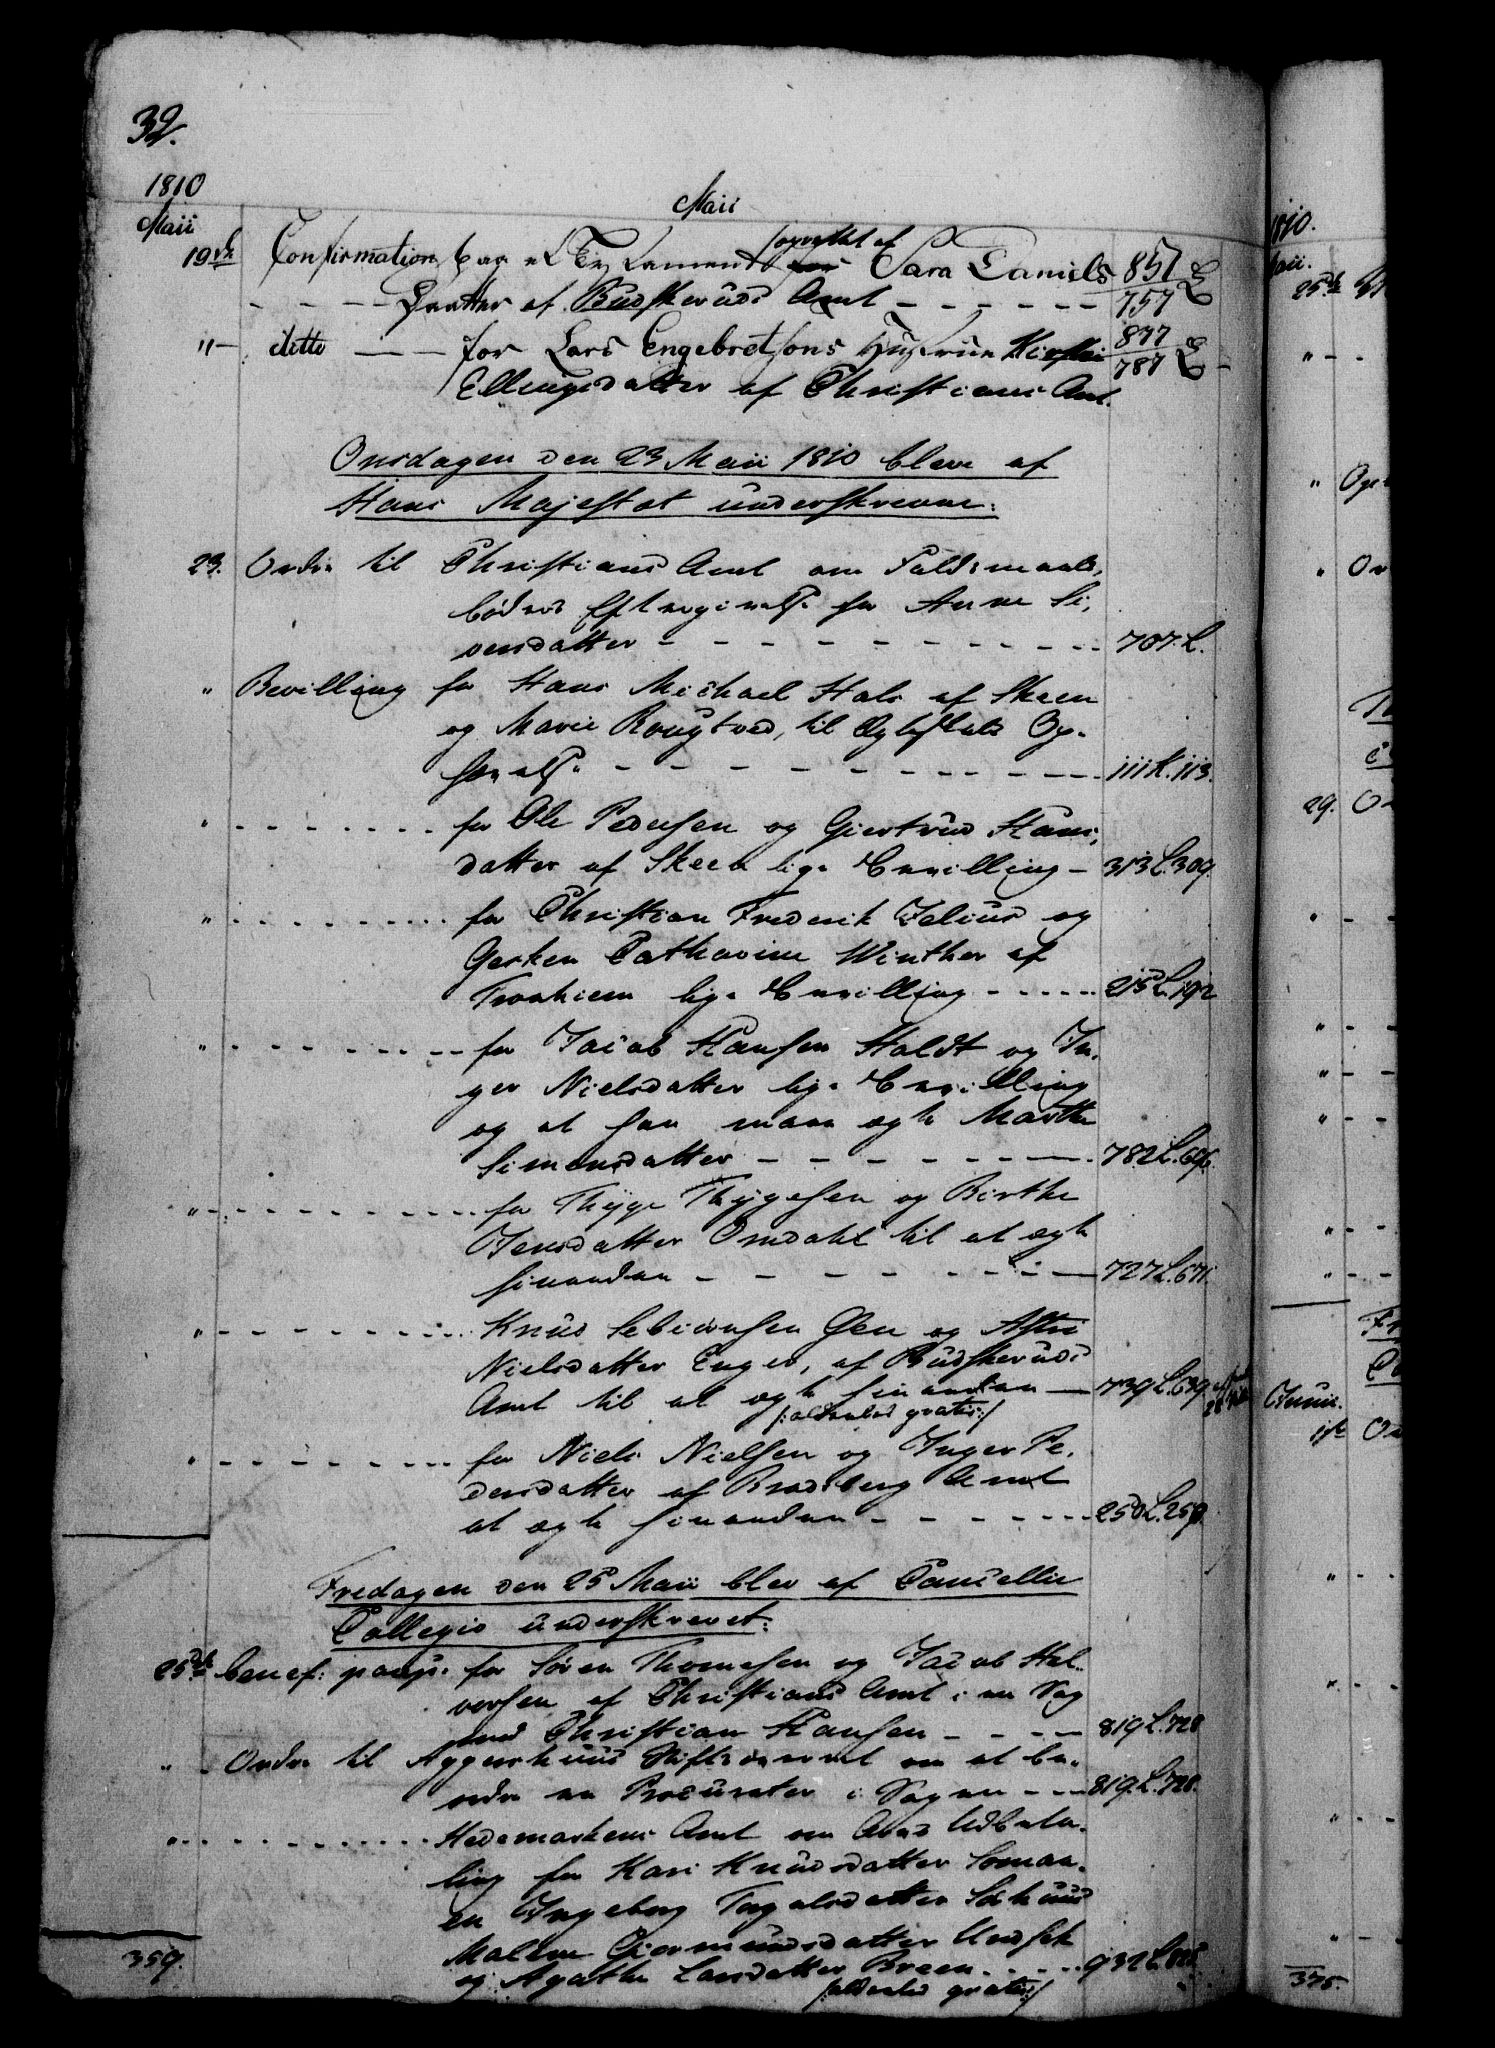 32.
1810
Maii
Maii
19de Confirmation paa et Testament oprettet af Sara Daniels 857 L
- - - - Daatter af Budskeruds Amt - - - - - - 757
"- ditto - - for Lars Engebretsons Hustrue Kirsti 877 L
787
Ellingsdatter af Christians Amt.
Onsdagen den 23 Maii 1810 bleve af
Hans Majestæt underskrevne:
23. Ordre til Christians Amt om Faldsmaals-
bøders Eftergivelse for Anne Si-
versdatter - - - - - - - - - - 707 L.
" Bevilling for Hans Michael Hals af Skeen
og Marie Rougtved, til Ægteskabs Op-
hævelse - - - - - - - - - - 111 L. 113.
" - - - - - - - for Ole Pedersen og Giertrud Hans-
datter af Skeen lige Bevilling - 313 L. 309.
" - - - - - - - for Christian Frederik Jelius og
Gerken Catharine Winther af
Tronhiem lige Bevilling - - - - - 215 L. 192
" - - - - - - - for Jacob Hansen Holdt og In-
ger Nielsdatter lige Bevilling
og at han maae ægte Marthe
Simensdatter - - - - - - - - 782 L. 696.
" - - - - - - - for Thyge Thygesen og Birthe
Jensdatter Omdahl til at ægte
hinanden - - - - - - - - - 727 L. 671.
" - - - - - - - Knud Sebiørnsen Glen og Astri
Nielsdatter Enger, af Budskeruds
Amt til at ægte hinanden - 739 L. 639
/: aldeeles gratis :/
" - - - - - - - for Niels Nielsen og Inger Pe-
dersdatter af Bradsberg Amt
at ægte hinanden - - - - - - - 250 L. 259.
Fredagen den 25 Maii blev af Cancellie
Collegio underskrevet:
25de benef: paup: for Søren Thomesen og Jacob Hal-
versen af Christians Amt i en Sag
mod Christian Hansen - - - - 819 L. 728
" - Ordre til Aggershuus Stiftsamt om at be-
ordre en Procurator i Sagen - - - 819. L. 728.
" - - - - - - - Hedemarkens Amt om Arvs Udbeta-
ling for Kari Knudsdatter
en Ingeborg
Malene Giermundsdatter
og Agathe Larsdatter Breen - - - - 932 L. 825
/: aldeeles gratis :/
359.
1810.
Maii.
25de
"- -
"
"
29.
Junii.
1ste
375.